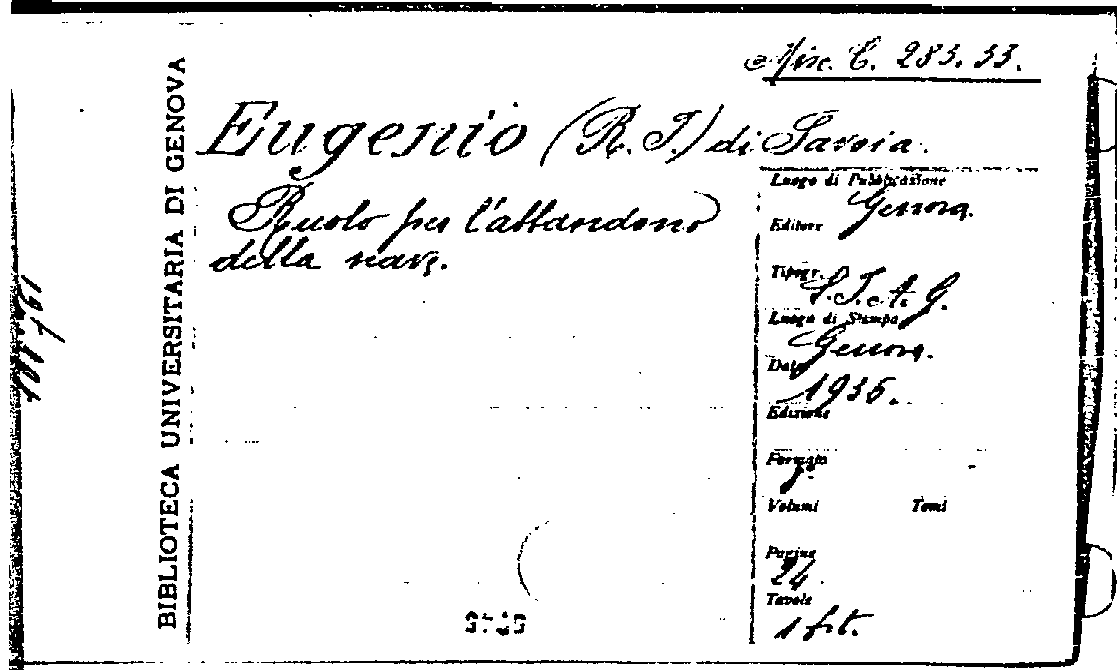 Misc. C. 283.33.
BIBLIOTECA UNIVERSITARIA DI GENOVA
Eugenio (R. I.) di Savoia.
Ruolo per l'abbandono
della nave.
Luogo di Pubblicazione
Genova.
Editore
Tipogr.
S.I.A.G.
Luogo di Stampa
Genova.
Data
1936.
Edizione
Formato
Volumi Tomi
Pagine
24.
Tavole
1 f.t.